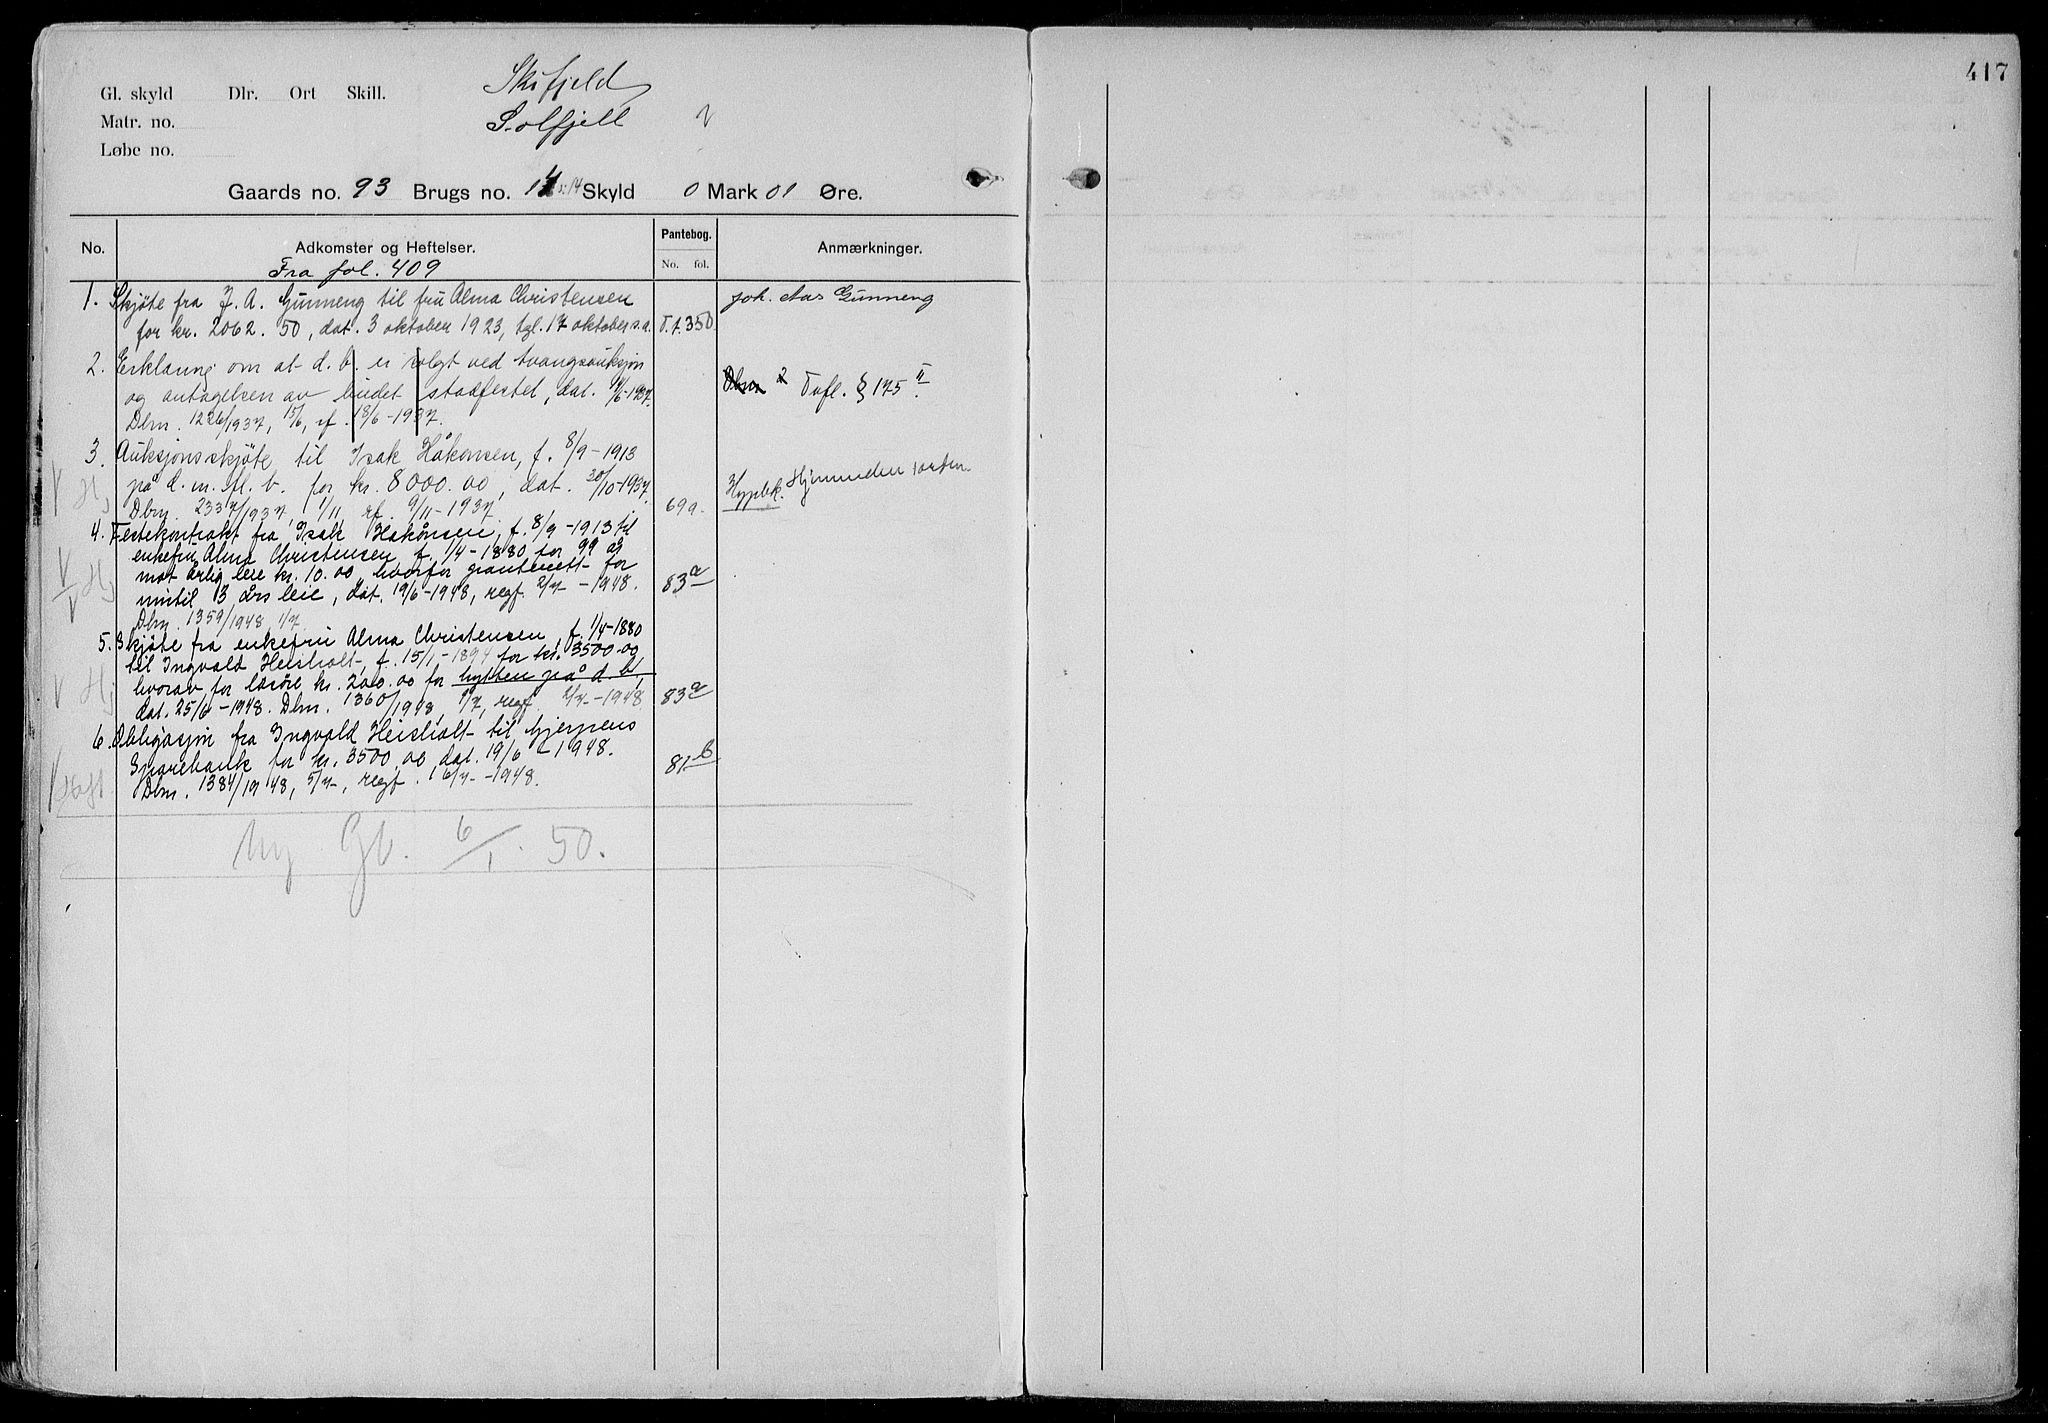 417
Skifjeld
Gl. skyld Dlr. Ort Skill.
Solfjell
Matr. no.
Løbe no.
Gaards no. 93 Brugs no. 14 Skyld 0 Mark 01 Øre.
No. Adkomster og Heftelser. Pantebog. No. fol. Anmærkninger.
Fra fol. 409
1. Skjøte fra J. A. Gunneng til fru Alma Christensen Joh. Aas Gunneng
for kr. 2062.50, dat. 3 oktober 1923, tgl. 17 oktober s.a. 350.
2. Erklæring om at d. b. er solgt ved tvangsauksjon
og antagelsen av budet stadfestet, dat. /6-1937. Tvfl. § 175 II
Dbm. 1226/1937, 15/6, rf. 18/6-1937.
3. Auksjonsskjøte til Isak Håkonsen, f. 8/9-1913
på d. m. fl. b. for kr. 8000.00, dat. 30/10-1937. Hypbk.
Dbm. 2337/1937, 1/11, rf. 9/11-1937. 69a.
4. Festekontrakt fra Isak Håkonsen, f. 8/9-1913 til
enkefru Alma Christensen f. 1/4-1880 for 99 år
mot årlig leie kr. 10.00 hvorfor panterett for
inntil 3 års leie, dat. 19/6-1948, regf. 2/7-1948. 83a
Dbm. 1359/1948, 1/7.
5. Skjøte fra enkefru Alma Christensen, f. 1/4-1880
til Ingvald Heisholt, f. 15/1-1894 for kr. 3500.00
hvorav for løsøre kr. 200.00 for hytten på d. b.,
dat. 25/6-1948. Dbm. 1360/1948, 1/7, regf. 2/7-1948 83a
6. Obligasjon fra Ingvald Heisholt til Gjerpens
Sparebank for kr. 3500.00 dat. 19/6-1948. 81b
Dbm. 1384/1948, 5/7, regf. 6/7-1948.
Ny Gb. 6/1. 50.